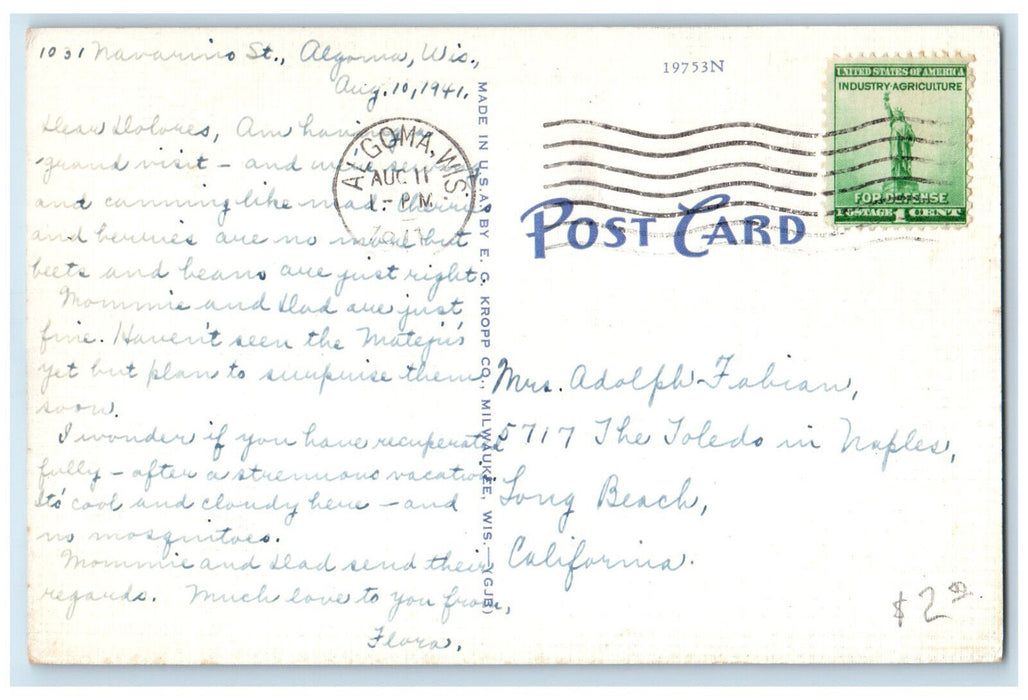 1031 Navarino St., Algoma, Wis.,
Aug. 10, 1941.
Dear Dolores, Am having a
grand visit - and
and canning like mad. Cherries
and berries are no more but
beets and beans are just right.
Mommie and Dad are just
fine. Haven't seen the Matejus
yet but plan to surpurise them
soon.
I wonder if you have recuperated
fully - after a strenuous vacation
It's cool and cloudy here - and
no mosquitoes.
Mommie and Dad send their
regards. Much love to you from,
Flora.
ALGOMA, WIS.
AUG 11
- PM
1941
MADE IN U.S.A. BY E. C. KROPP CO., MILWAUKEE, WIS.—(GJB)
19753N
UNITED STATES OF AMERICA
INDUSTRY·AGRICULTURE
FOR DEFENSE
POSTAGE 1 CENT
POST CARD
Mrs. Adolph Fabian,
5717 The Toledo in Naples,
Long Beach,
California.
$2.00